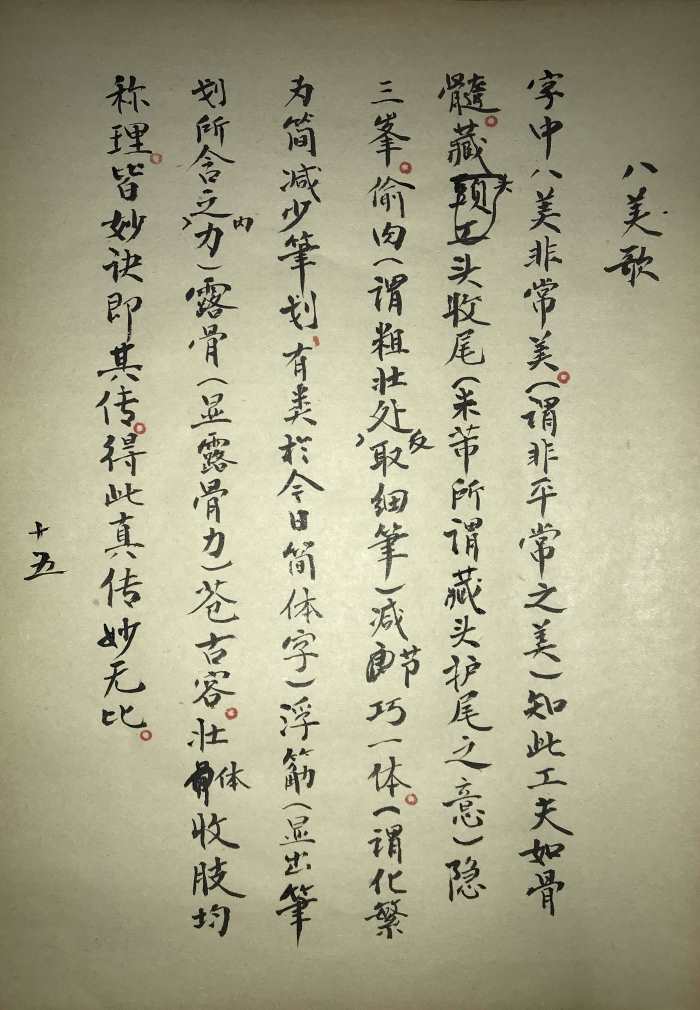 八美歌
字中八美非常美。(谓非平常之美)知此工夫如骨
髓。藏头工头收尾(米芾所谓藏头护尾之意)隐
三峯。偷肉(谓粗壮处反取细筆)减节巧一体。(谓化繁
为简减少筆划、有类於今日简体字)浮筋(显出筆
划所含之内力)露骨(显露骨力)苍古容。壮体收肢均
称理。皆妙诀即其传。得此真传妙无比。
十五